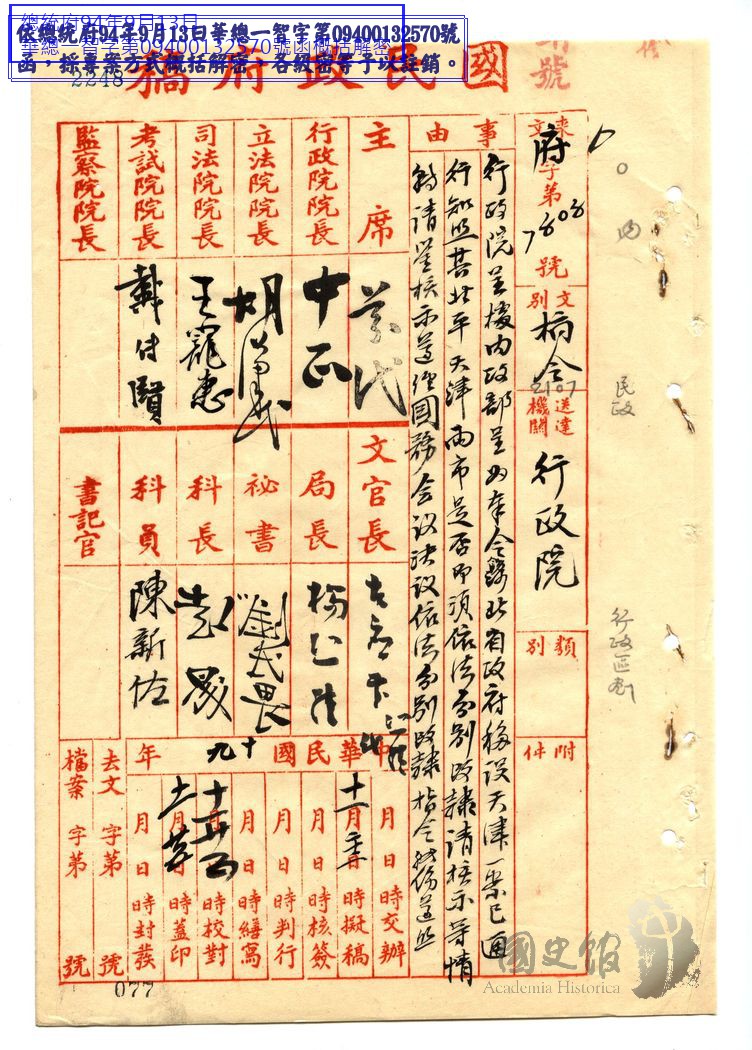 總統府94年9月13日
華總一智字第09400132570號函概括解密
依總統府94年9月13日華總一智字第09400132570號
函，採專案方式概括解密，各級密等予以註銷。
2248
國民政府稿
號
來文
府字第7808號
文別
指令
2107
送達機關
行政院
類別
附件
事由
行政院呈據內政部呈為奉令河北省政府移設天津一案已通
行知照其北平天津兩市是否即須依法分別改隸請核示等情
轉請鑒核示遵經國務會議決議依法分別改隸指令轉飭遵照
主席
行政院院長
中正
立法院院長
司法院院長
王寵惠
考試院院長
監察院院長
文官長
局長
祕書
科長
科員
陳新佐
書記官
中華民國十九年
月日時交辦
十一月日時擬稿
月日時核簽
月日時判行
月日時繕寫
月日時校對
月日時蓋印
月日時封發
去文字第號
檔案字第號
077
民政
行政區劃
國史館
Academia Historica